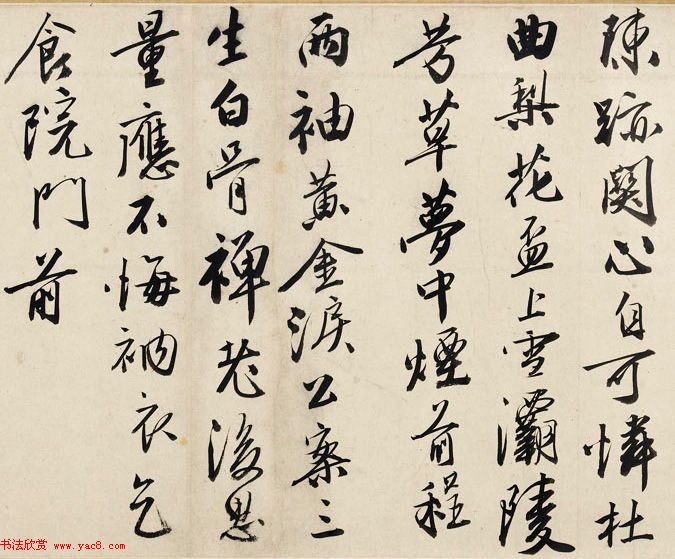 陳跡關心自可憐杜
曲梨花盃上雪灞陵
芳草夢中煙前程
兩袖黃金淚公案三
生白骨禪老後思
量應不悔衲衣乞
食院門前
书法欣赏 www.yac8.com